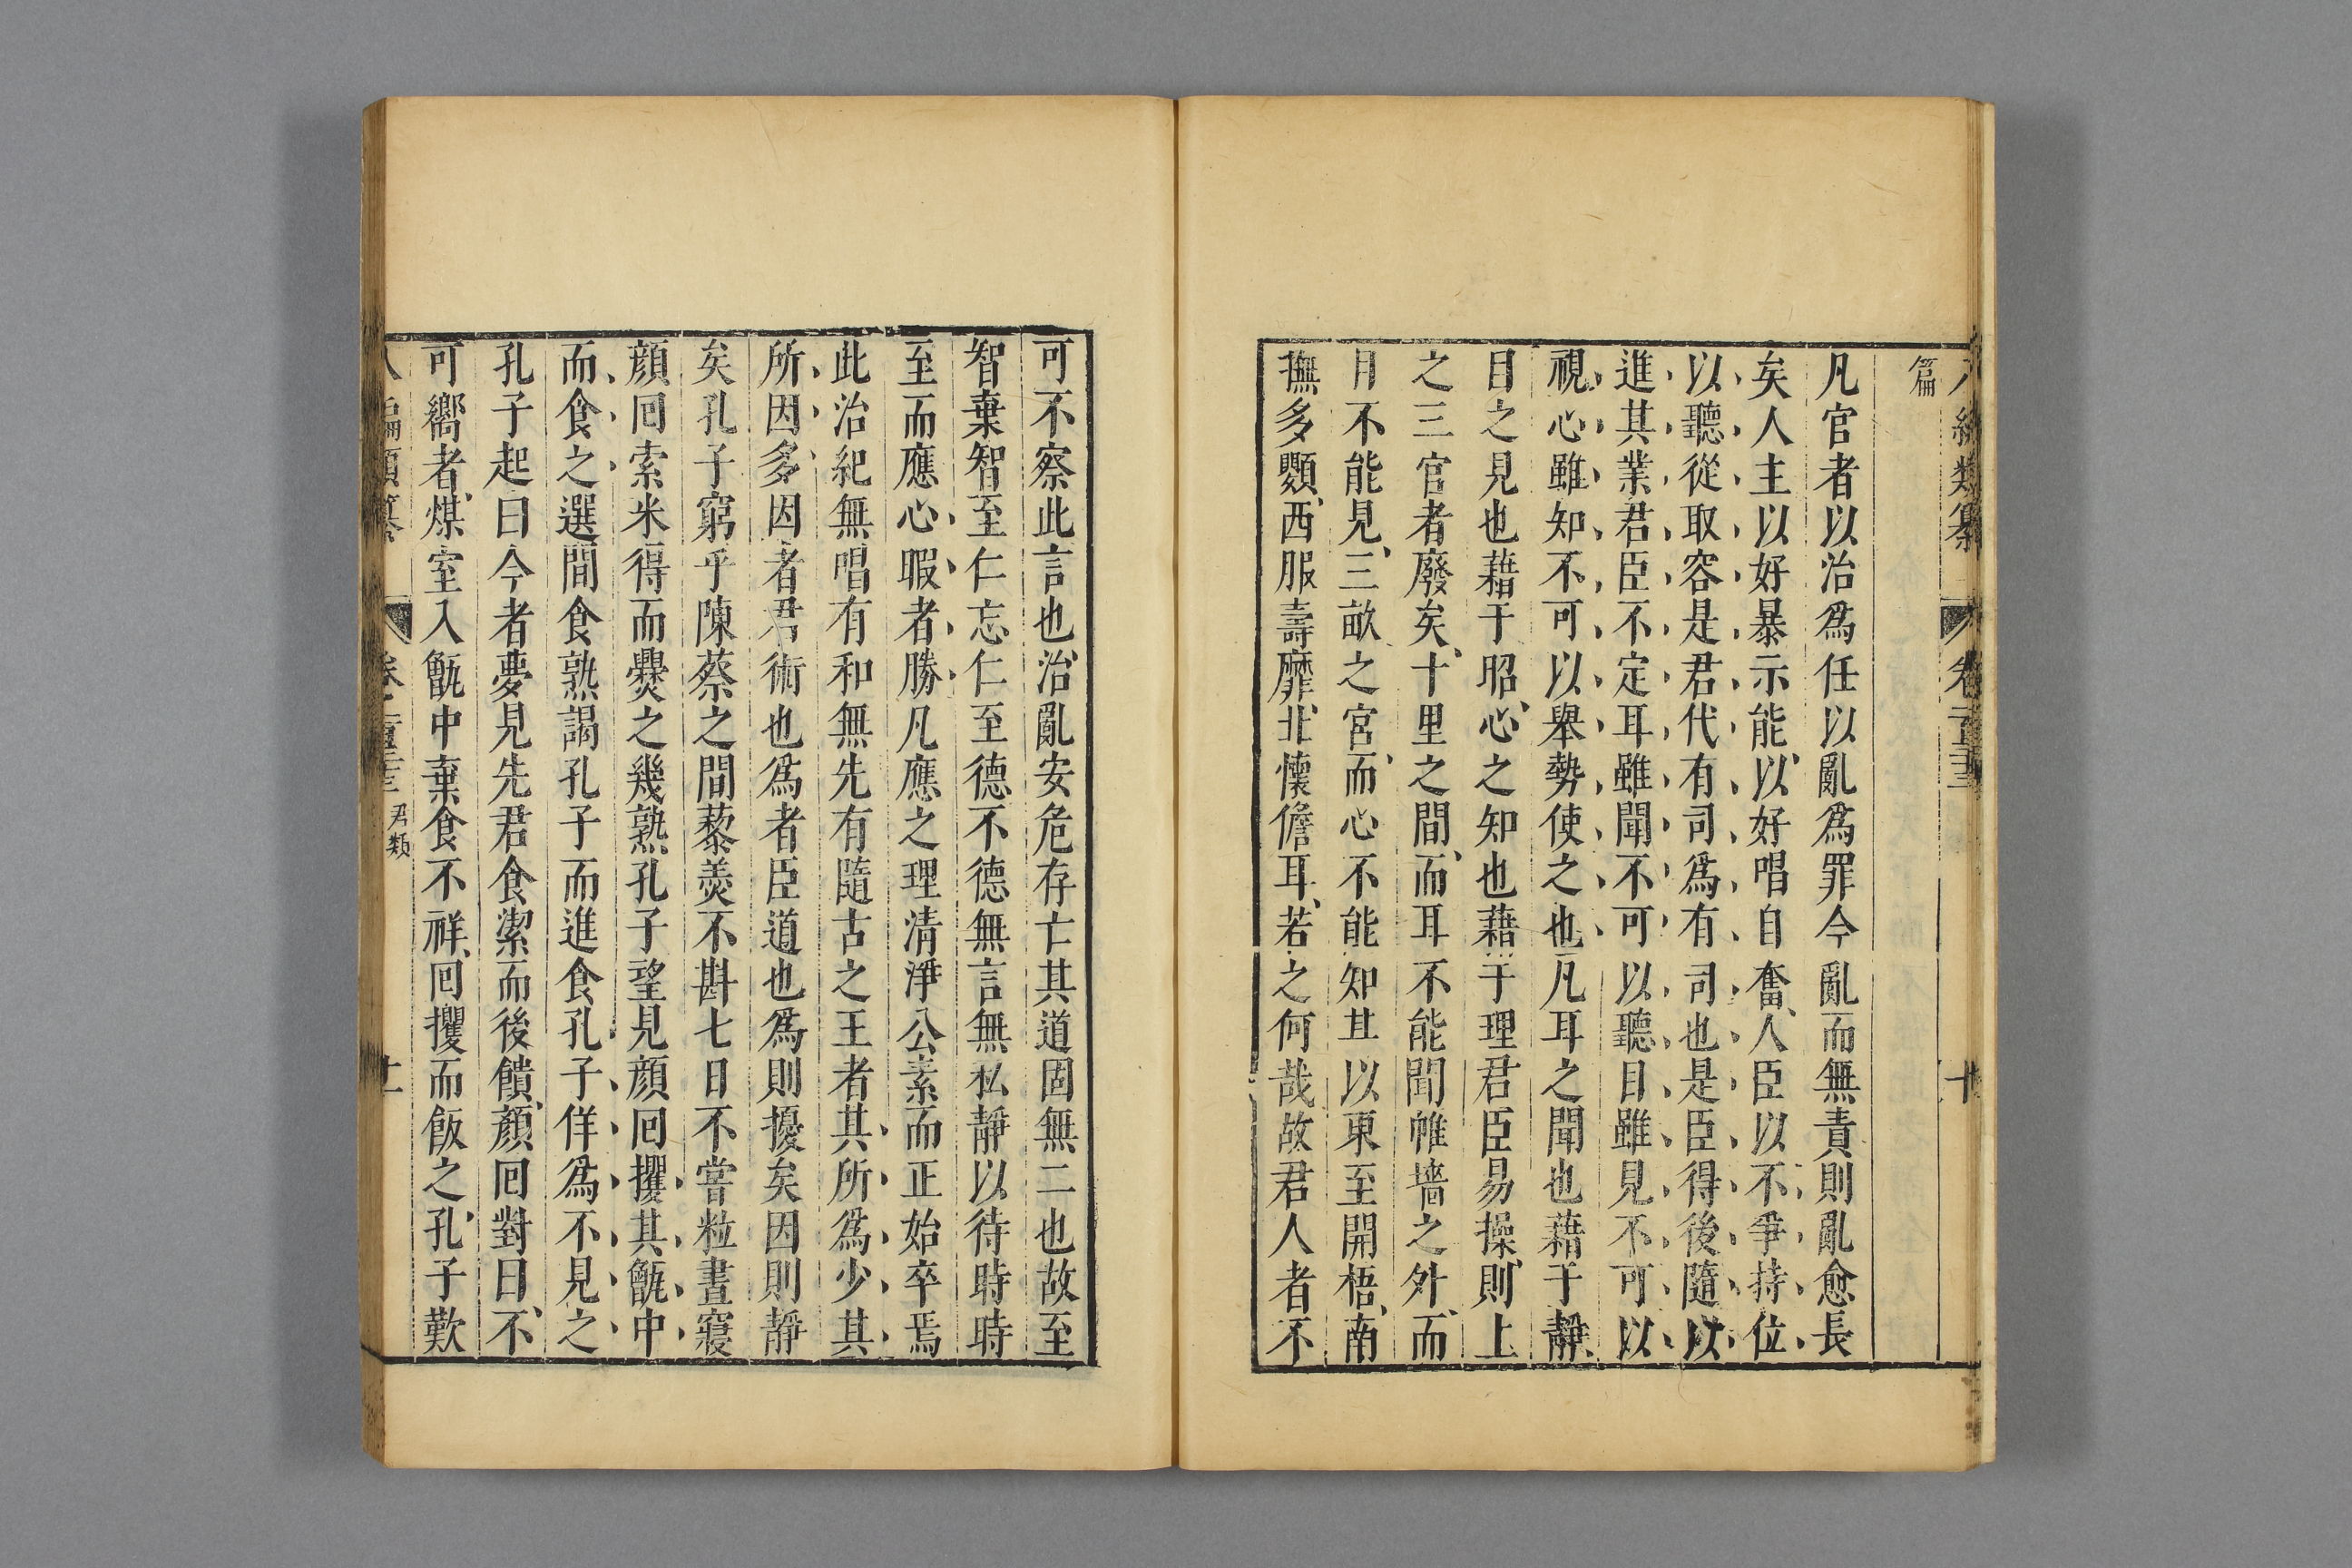 篇
凡官者以治爲任以亂爲罪今亂而無責則亂愈長
矣人主以好暴示能以好唱自奮人臣以不爭持位
以聽從取容是君代有司爲有司也是臣得後隨以
進其業君臣不定耳雖聞不可以聽目雖見不可以
視心雖知不可以舉勢使之也凡耳之聞也藉于靜
目之見也藉于昭心之知也藉于理君臣易操則上
之三官者廢矣十里之間而耳不能聞帷墻之外而
目不能見三畝之宮而心不能知其以東至開梧南
撫多䫫西服壽靡北懷儋耳若之何哉故君人者不
可不察此言也治亂安危存亡其道固無二也故至
智棄智至仁忘仁至德不德無言無私靜以待時時
至而應心暇者勝凡應之理清淨公素而正始卒焉
此治紀無唱有和無先有隨古之王者其所爲少其
所因多因者君術也爲者臣道也爲則擾矣因則靜
矣孔子窮乎陳蔡之間藜羹不斟七日不嘗粒晝寢
顏回索米得而爨之幾熟孔子望見顏回攫其甑中
而食之選間食熟謁孔子而進食孔子佯爲不見之
孔子起曰今者夢見先君食潔而後饋顏回對曰不
可嚮者煤室入甑中棄食不祥回攫而飯之孔子歎
君類